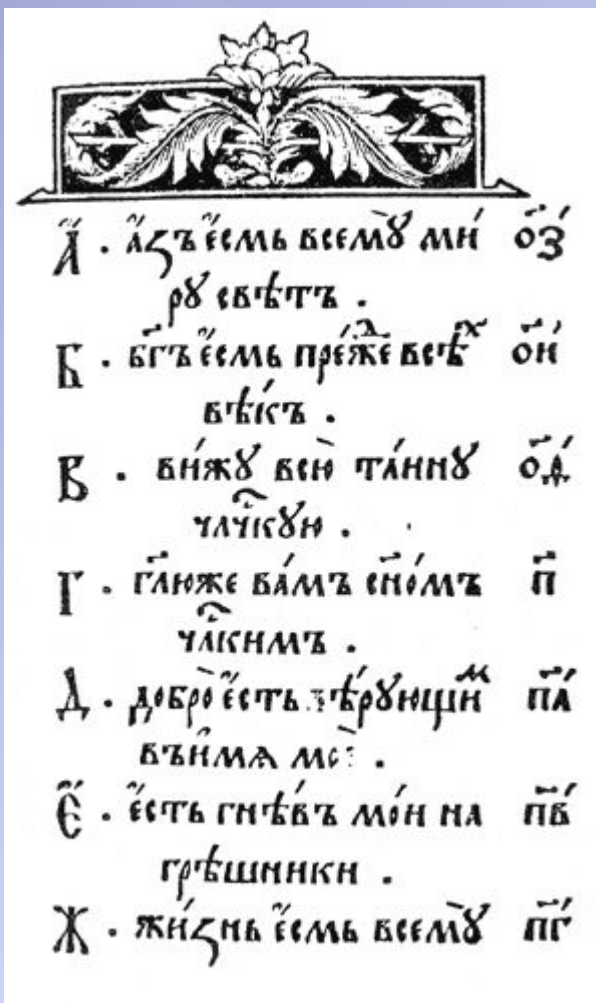 А҆ . а҆́зъ є҆́смь всемꙋ̀ ми́ о҃з
рꙋ свѣтъ .
Б . бг҃ъ є҆́смь пре́жⷣе всѣⷯ о҃и
вѣкъ .
В . ви́жꙋ всю̀ та́инꙋ о҃ѳ
члч҃кꙋю .
Г . гл҃юже ва́мъ сн҃о́мъ п҃
чл҃кимъ .
Д . добро̀ є҆́сть вѣ́рꙋющиⷨ п҃а
въи҆́мѧ мое .
Є҆ . є҆́сть гнѣ́въ мо́и на п҃в
грѣшники .
Ж . жи́знь є҆́смь всемꙋ̀ п҃г